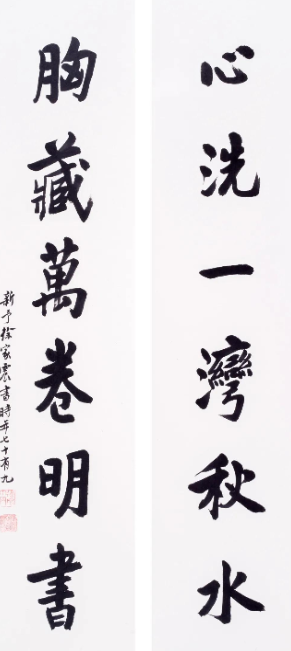 心洗一灣秋水
胸藏萬卷明書
新予徐家震書時年七十有九